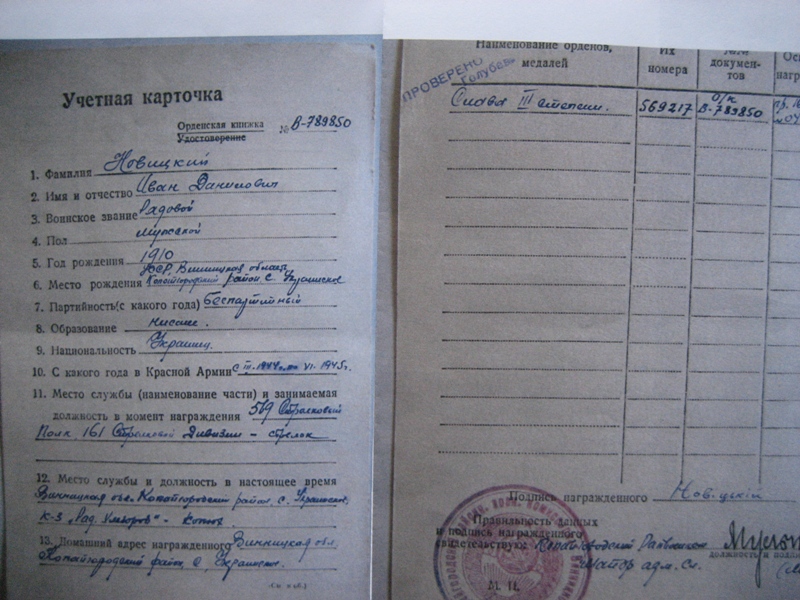 Учетная карточка
Орденская книжка
Удостоверение
№ В-789850
1. Фамилия Новицкий
2. Имя и отчество Иван Данилович
3. Воинское звание Рядовой
4. Пол мужской
5. Год рождения 1910
УССР, Винницкая область
6. Место рождения Копайгородский район с. Украинское
7. Партийность(с какого года) беспартийный
8. Образование низшее.
9. Национальность Украинец
10. С какого года в Красной Армии с III-1944 по VI-1945г.
11. Место службы (наименование части) и занимаемая
должность в момент награждения 569 Стрелковый
Полк 161 Стрелковой Дивизии - стрелок
12. Место службы и должность в настоящее время
Винницкая обл. Копайгородский район с. Украинское,
к-з
13. Домашний адрес награжденного Винницкая обл.
Копайгородский район, с. Украинское.
Наименование орденов,
медалей
Их
номера
документов
ПРОВЕРЕНО
Голубев
Слава III степени.
569217
о/к
В-789850
Подпись награжденного Новіцкій
Правильность данных
и подпись награжденного
свидетельствую:
Майор адм. сл.
М. П.